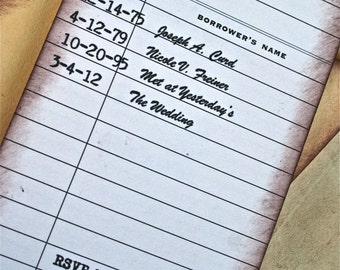 BORROWER'S NAME
-14-75 Joseph A. Curd
4-12-79 Nicole V. Freiner
10-20-95 Met at Yesterday's
3-4-12 The Wedding
RSVP